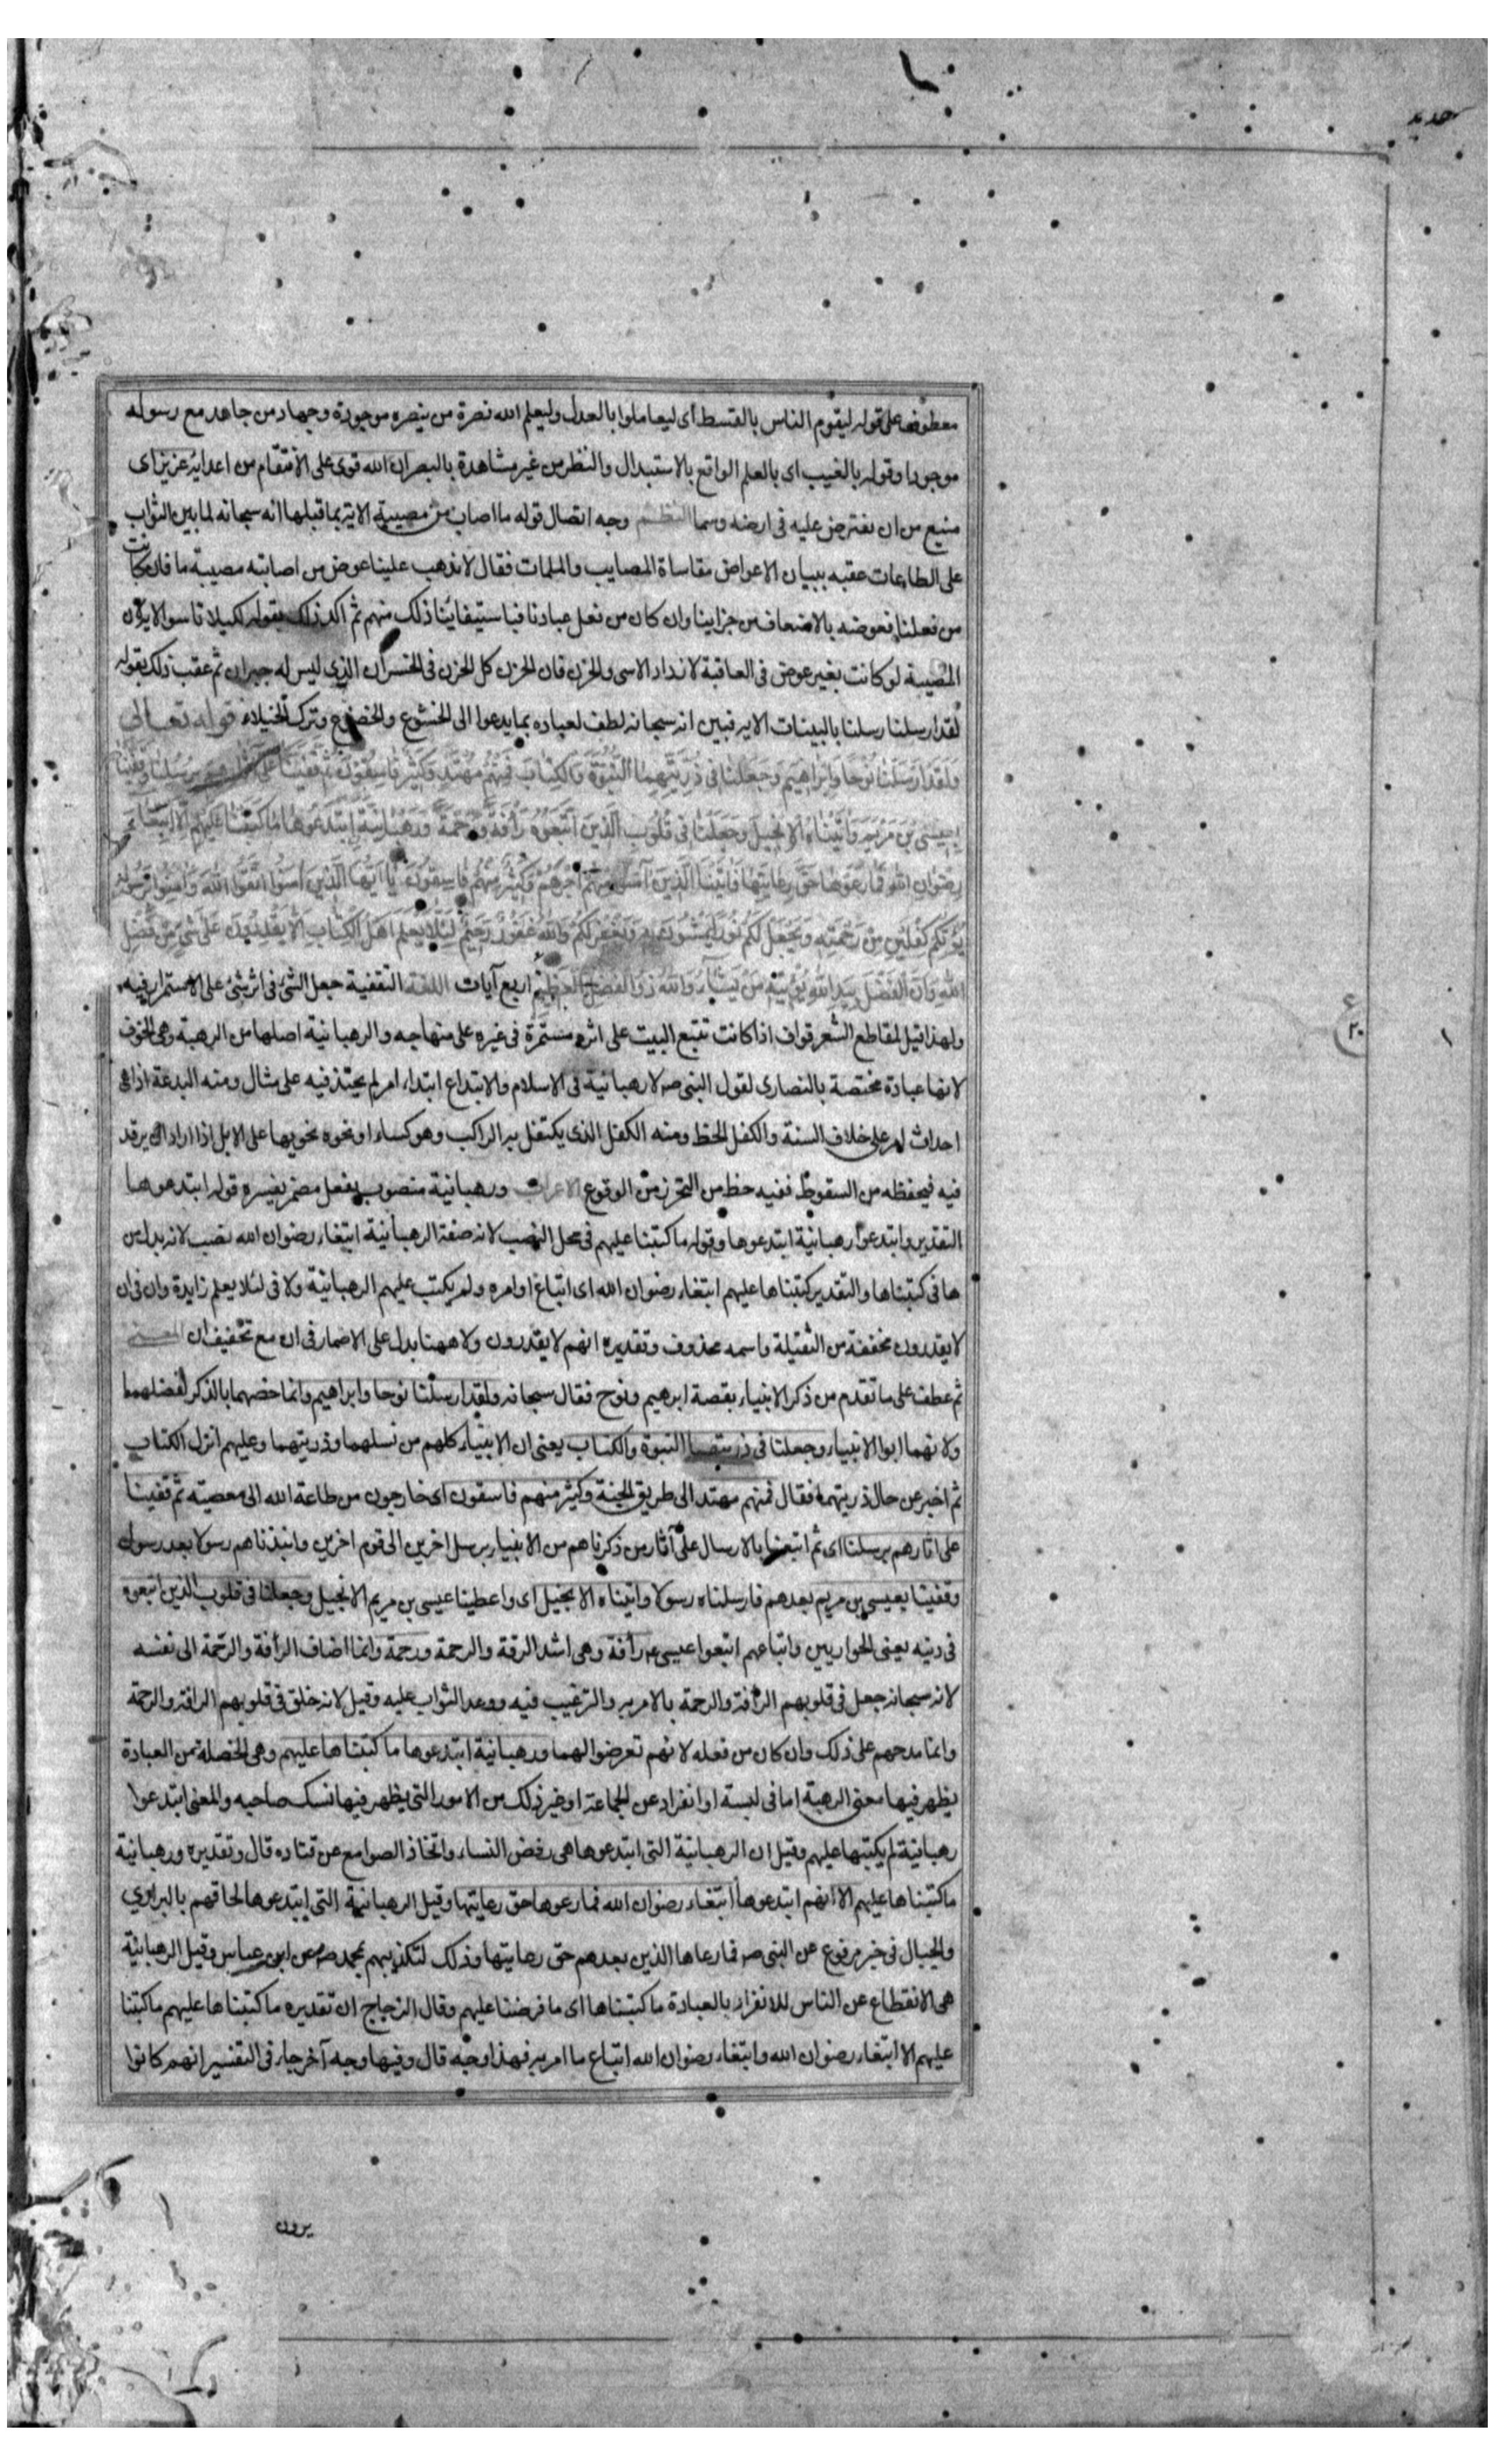 حديد
معطوفا على قوله ليقوم الناس بالقسط اى ليعاملوا بالعدل وليعلم الله نصرة من ينصره موجودة وجهاد من جاهد مع رسوله
موجودا وقوله بالغيب اى بالعلم الواقع بالاستبدال والنظر من غير مشاهدة بالبصر ان الله قوى على الانتقام من اعدايه عزيز اى
منيع من ان يعترض عليه فى ارضه وسما النظم وجه اتصال قوله ما اصاب من مصيبة الاية بما قبلها انه سبحانه لما بين الثواب
على الطاعات عقبه ببيان الاعواض مقاساة المصايب والملمات فقال لا نذهب علينا عوض من اصابته مصيبة ما فان كانت
من فعلنا نعوضه بالاضعاف من جزاينا وان كان من فعل عبادنا فباستيفاينا ذلك منهم ثم اكد ذلك بقوله لكيلا تاسوا الاية لان
المصيبة لو كانت بغير عوض فى العاقبة لازداد الاسى والحزن فان الحزن كل الحزن فى الخسران الذى ليس له جبران ثم عقب ذلك بقوله
لقد ارسلنا رسلنا بالبينات الاية فبين انه سبحانه لطف لعباده بما يدعوا الى الخشوع والخضوع وترك الخيلاء قوله تعالى
وَلَقَد اَرسَلنَا نُوحًا وَاِبرَاهِيمَ وَجَعَلنَا فِى ذُرِّيَّتِهِمَا النُّبُوَّةَ وَالكِتَابَ فَمِنهُم مُهتَدٍ وَكَثِيرٌ مِنهُم فَاسِقُونَ ثُمَّ قَفَّينَا عَلَى اثَارِهِم بِرُسُلِنَا وَقَفَّينَا
بِعِيسَى بنِ مَريَمَ وَاتَينَاهُ الاِنجِيلَ وَجَعَلنَا فِى قُلُوبِ الَّذِينَ اتَّبَعُوهُ رَأفَةً وَرَحمَةً وَرَهبَانِيَّةً اِبتَدَعُوهَا مَا كَتَبنَاهَا عَلَيهِم اِلَّا ابتِغَاءَ
رِضوَانِ اللهِ فَمَا رَعَوهَا حَقَّ رِعَايَتِهَا فَاتَينَا الَّذِينَ آمَنُوا مِنهُم اَجرَهُم وَكَثِيرٌ مِنهُم فَاسِقُونَ يَا اَيُّهَا الَّذِينَ آمَنُوا اتَّقُوا اللهَ وَآمِنُوا بِرَسُولِهِ
يُؤتِكُم كِفلَينِ مِن رَحمَتِهِ وَيَجعَل لَكُم نُورًا تَمشُونَ بِهِ وَيَغفِر لَكُم وَاللهُ غَفُورٌ رَحِيمٌ لِئَلَّا يَعلَمَ اَهلُ الكِتَابِ اَلَّا يَقدِرُونَ عَلَى شَىءٍ مِن فَضلِ
اللهِ وَاَنَّ الفَضلَ بِيَدِ اللهِ يُؤتِيهِ مَن يَشَاءُ وَاللهُ ذُو الفَضلِ العَظِيمِ اربع آيات اللغة التقفية جعل الشئ فى اثر شئ على الاستمرار فيه
ولهذا قيل لمقاطع الشعر قواف اذا كانت تتبع البيت على اثره مستمرة فى غيره على منهاجه والرهبانية اصلها من الرهبة وهى الخوف
لانها عبادة مختصة بالنصارى لقول النبى صه لا رهبانية فى الاسلام والابتداع ابتداء امر لم يحتذ فيه على مثال ومنه البدعة اذ هى
احداث امر على خلاف السنة والكفل الحظ ومنه الكفل الذى يكتفل به الراكب وهو كساء او نحوه نحويها على الابل اذا اراد ان يرقد
فيه فيحفظه من السقوط ففيه حظ من التحرز من الوقوع الاعراب ورهبانية منصوب بفعل مضمر يفسره قوله ابتدعوها
التقدير وابتدعوا رهبانية ابتدعوها وقوله ما كتبنا عليهم فى محل النصب لانه صفة الرهبانية ابتغاء رضوان الله نصب لانه بدل من
ها فى كتبناها والتقدير كتبناها عليهم ابتغاء رضوان الله اى اتباع اوامره ولم يكتب عليهم الرهبانية ولا فى لئلا يعلم زايدة وان فى ان
لا يقدرون مخففة من الثقيلة واسمه محذوف وتقديره انهم لا يقدرون ولا ههنا بدل على الاضمار فى ان مع تخفيف ان المعنى
ثم عطف على ما تقدم من ذكر الانبياء بقصة ابرهيم ونوح فقال سبحانه ولقد ارسلنا نوحا وابراهيم وانما خصهما بالذكر لفضلهما
ولانهما ابوا الانبياء وجعلنا فى ذريتهما النبوة والكتاب يعنى ان الانبياء كلهم من نسلهما وذريتهما وعليهم انزل الكتاب
ثم اخبر عن حال ذريتهما فقال فمنهم مهتد الى طريق الجنة وكثير منهم فاسقون اى خارجون من طاعة الله الى معصيته ثم قفينا
على اثارهم برسلنا اى ثم اتبعنا بالارسال على آثار من ذكرناهم من الانبياء برسل اخرين الى قوم اخرين وانبذناهم رسولا بعد رسول
وقفينا بعيسى بن مريم بعدهم فارسلناه رسولا واتيناه الانجيل اى واعطينا عيسى بن مريم الانجيل وجعلنا فى قلوب الذين اتبعوه
فى دينه يعنى الحواريين واتباعهم اتبعوا عيسى ع رأفة وهى اشد الرقة والرحمة ورحمة وانما اضاف الرأفة والرحمة الى نفسه
لانه سبحانه جعل فى قلوبهم الرأفة والرحمة بالامر به والترغيب فيه ووعد الثواب عليه وقيل لانه خلق فى قلوبهم الرافة والرحمة
وانما مدحهم على ذلك وان كان من فعله لانهم تعرضوا لهما ورهبانية ابتدعوها ما كتبناها عليهم وهى الخصلة من العبادة
يظهر فيها معنى الرهبة اما فى لبسة او انفراد عن الجماعة او غير ذلك من الامور التى يظهر فيها نسك صاحبه والمعنى ابتدعوا
رهبانية لم يكتبها عليهم وقيل ان الرهبانية التى ابتدعوها هى رفض النساء واتخاذ الصوامع عن قتاده قال وتقديره ورهبانية
ما كتبناها عليهم الا انهم ابتدعوها ابتغاء رضوان الله فما رعوها حق رعايتها وقيل الرهبانية التى ابتدعوها لحاقهم بالبرارى
والجبال فى خبر مرفوع عن النبى صه فما رعاها الذين بعدهم حق رعايتها وذلك لتكذيبهم بمحمد صه عن ابن عباس وقيل الرهبانية
هى الانقطاع عن الناس للانفراد بالعبادة ما كتبناها اى ما فرضنا عليهم وقال الزجاج ان تقديره ما كتبناها عليهم ما كتبنا
عليهم الا ابتغاء رضوان الله وابتغاء رضوان الله اتباع ما امر به فهذا وجه قال وفيها وجه آخر جاء فى التفسير انهم كانوا
ع
٢٠
يرون